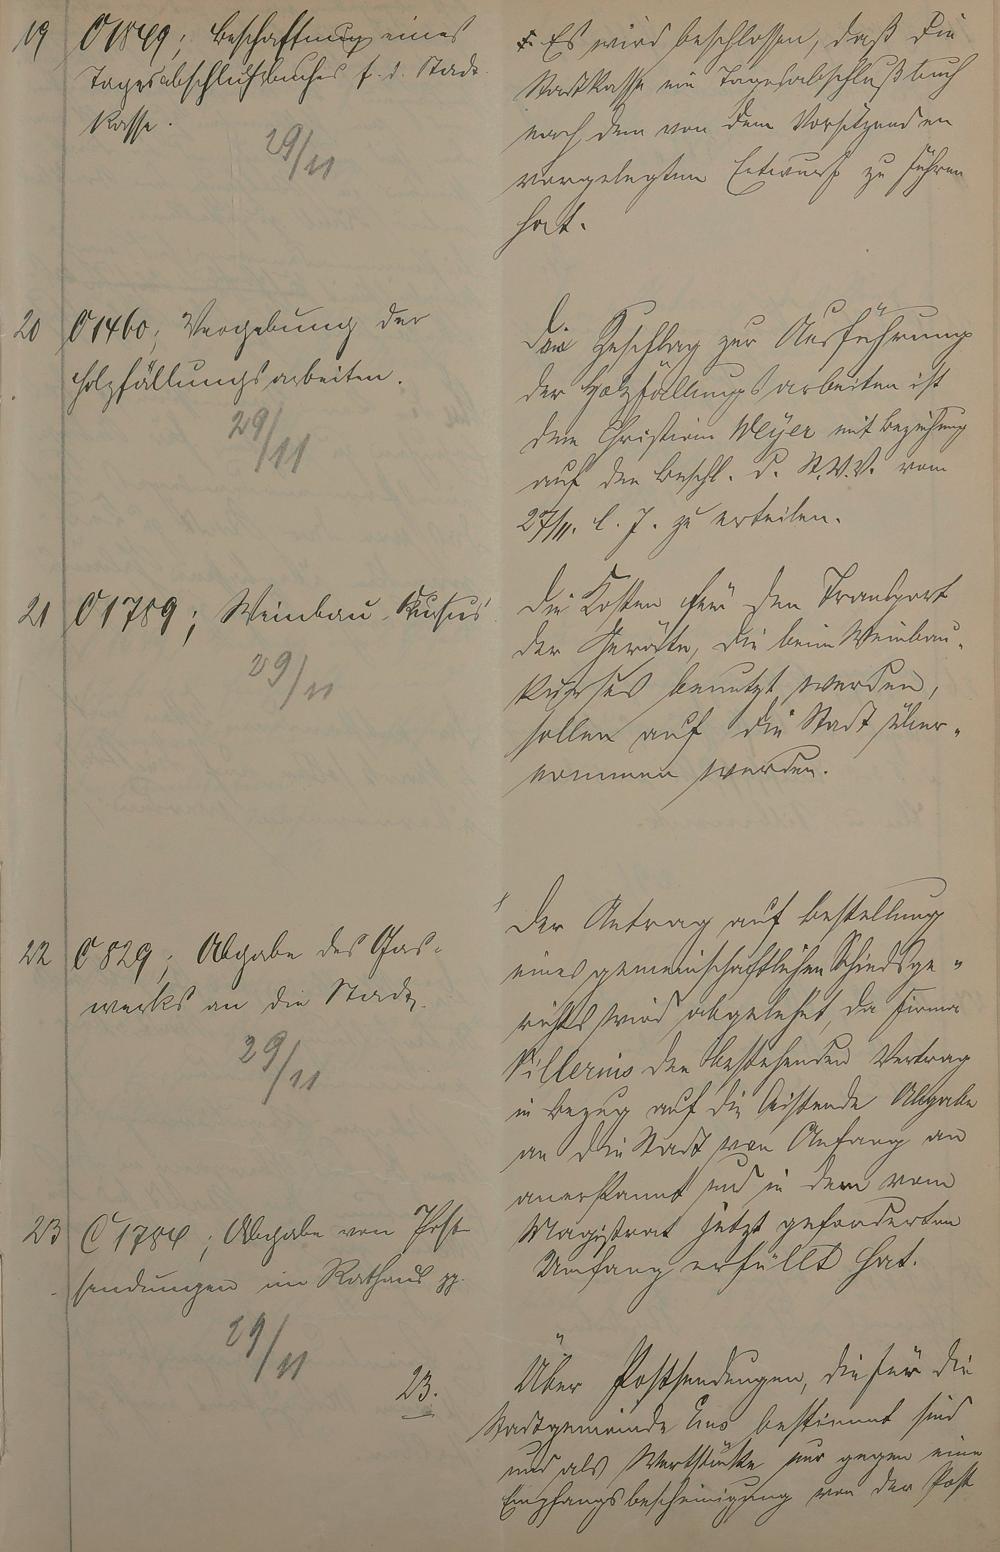 19 C 1849; Beschaffung eines
Tagesabschlußbuches f. d. Stadt
Kasse.
29/11
Es wird beschlossen, daß die
Stadtkasse ein Tagesabschlußbuch
nach dem von dem Vorsitzenden
vorgelegten Entwurf zu führen
hat.
20 C 1460; Vergebung der
Holzfällungsarbeiten.
29/11
Die Zuschlag zur Ausführung
der Holzfällungsarbeiten ist
dem Christian Meyer mit Beziehung
auf den Beschl. d. St.V.V. vom
27/11. l. J. zu erteilen.
21 C 1789; Weinbau-Kursus
29/11
Die Kosten für den Transport
der Geräte, die beim Weinbau-
kursus benutzt werden,
sollen auf die Stadt über-
nommen werden.
22 C 829; Abgabe des Gas-
werks an die Stadt.
29/11
Der Antrag auf Bestellung
eines gemeinschaftlichen Schiedsge-
richts wird abgelehnt, da Firma
den bestehenden Vertrag
in Bezug auf die Abgabe
an die Stadt von Anfang an
anerkannt und in dem vom
Magistrat jetzt geforderten
Umfang erfüllt hat.
23 C 1784; Abgabe von Post-
sendungen im Rathaus pp.
29/11
23.
Über Postsendungen, die für die
Stadtgemeinde Ems bestimmt sind
und als Wertstücke nur gegen eine
Empfangsbescheinigung von der Post